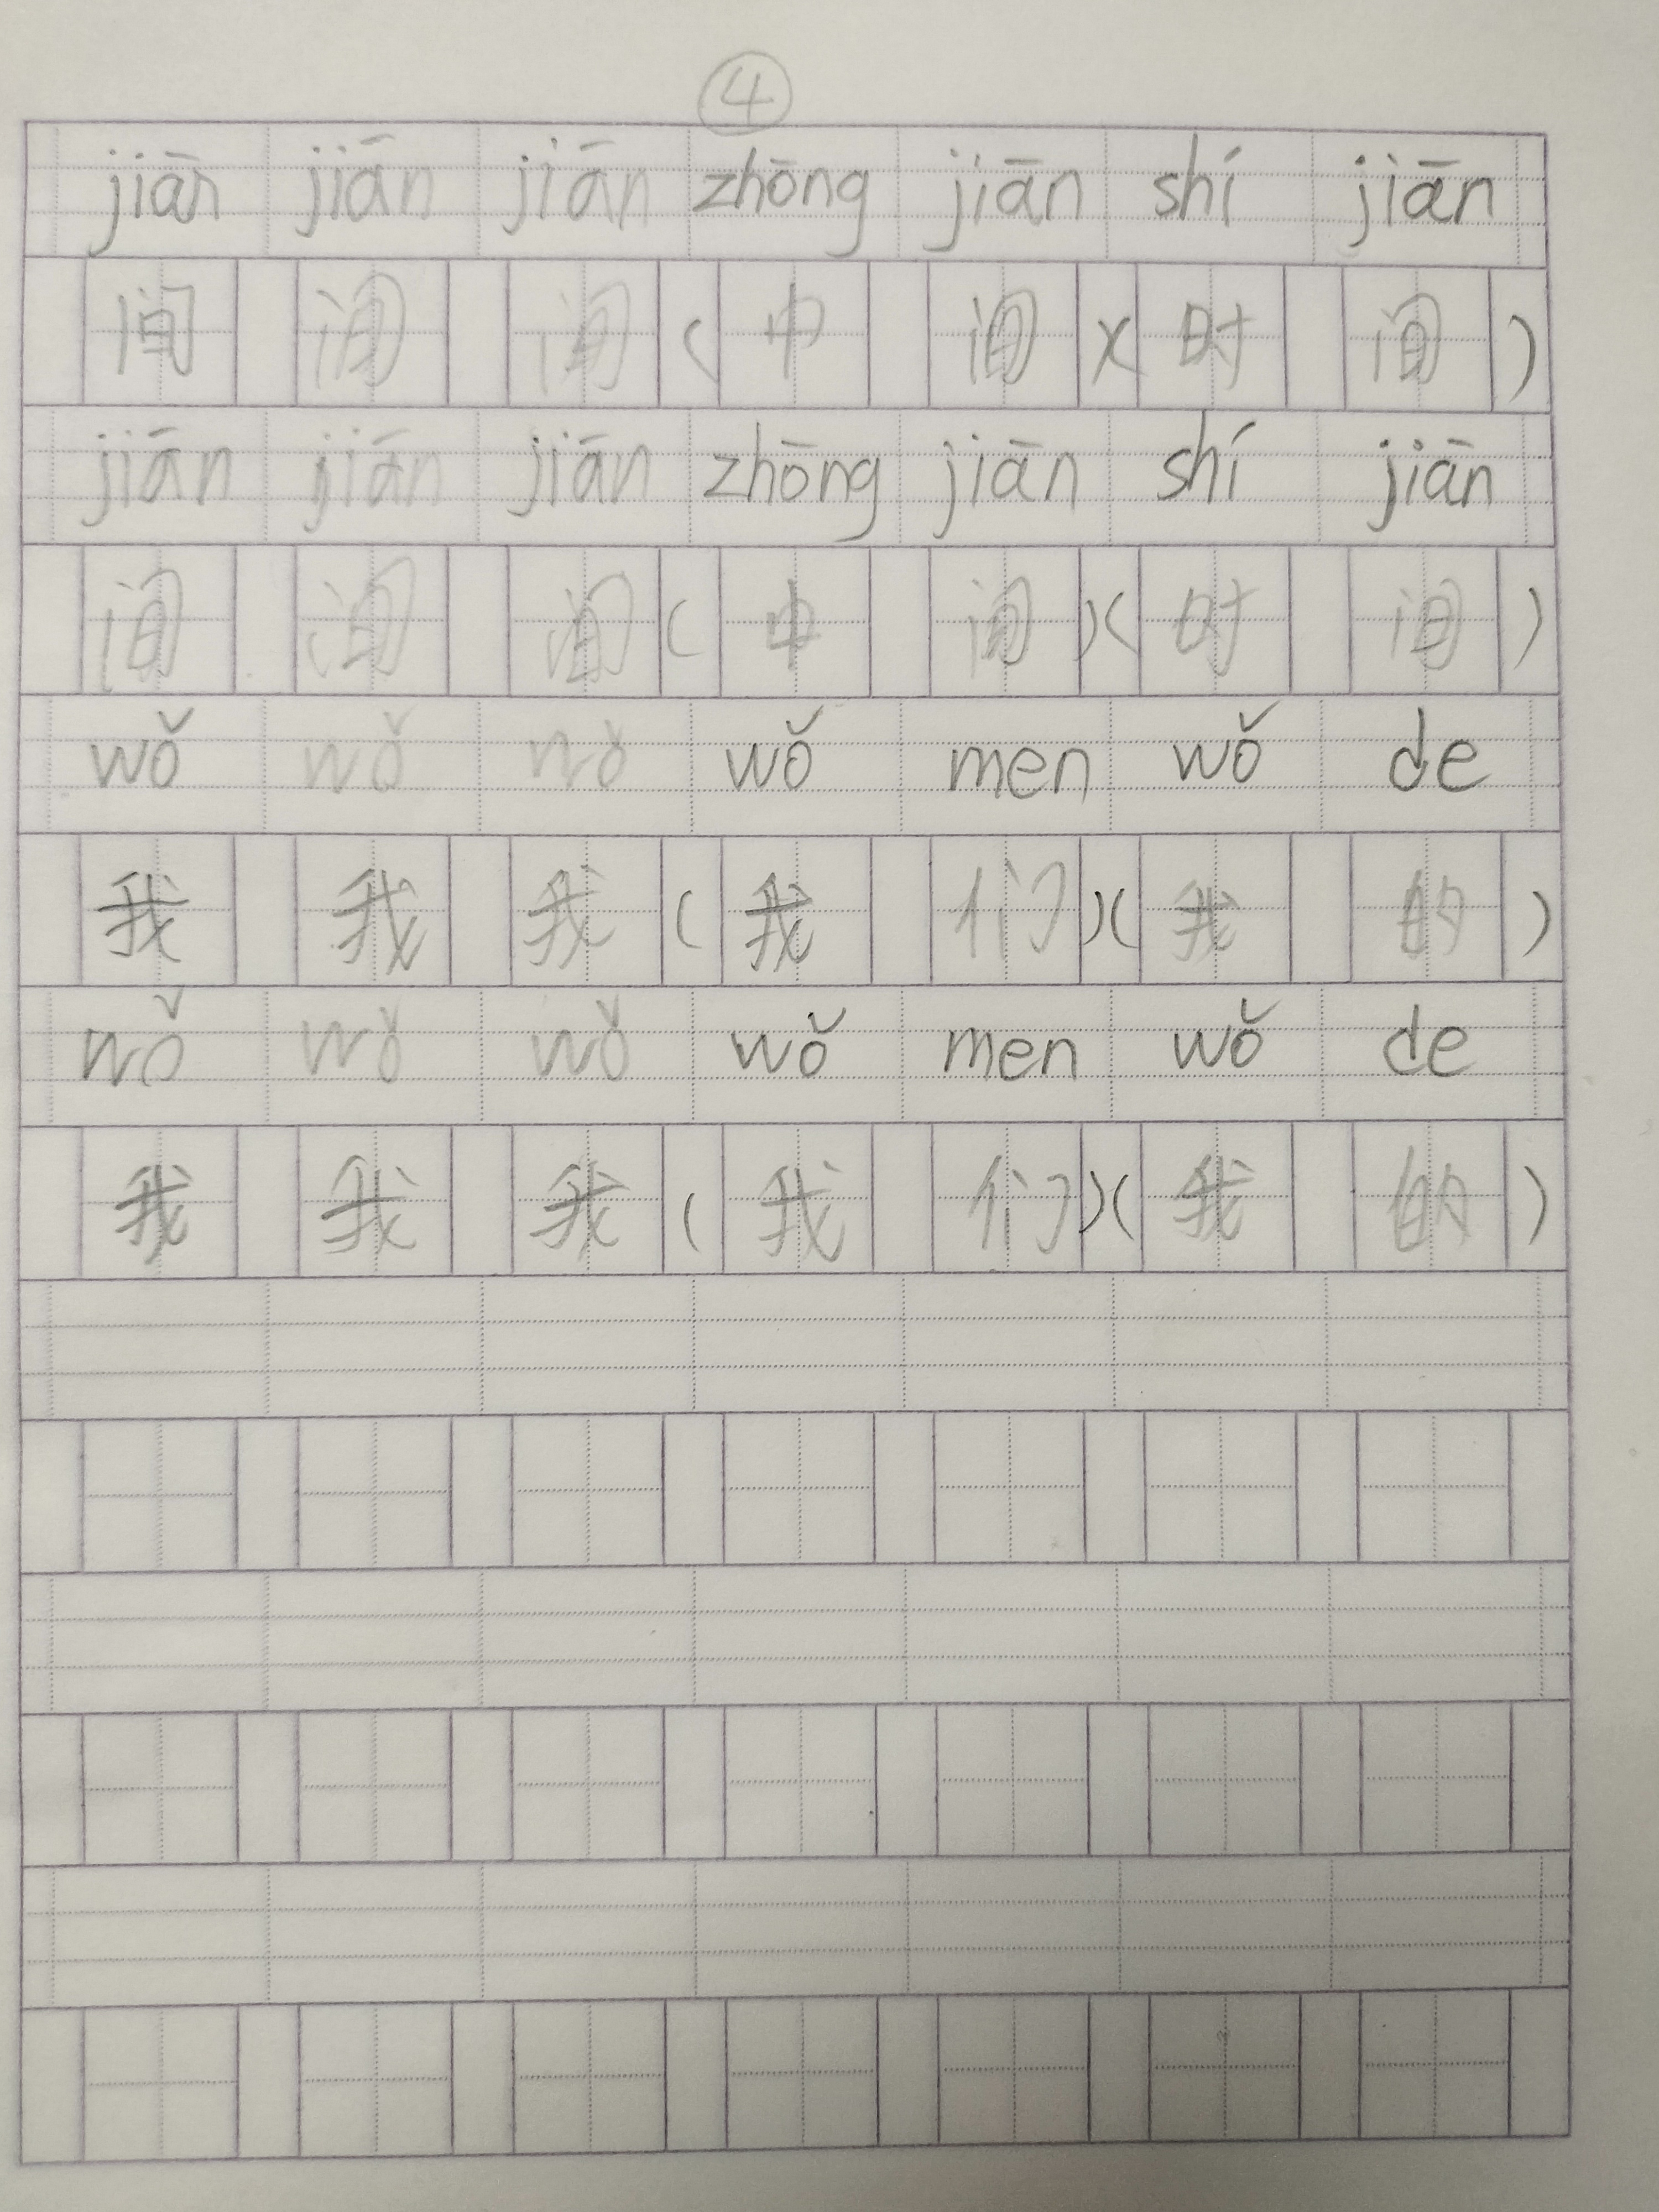 ④
jiān jiān jiān zhōng jiān shí jiān
间 间 间 ( 中 间 )( 时 间 )
jiān jiān jiān zhōng jiān shí jiān
间 间 间 ( 中 间 )( 时 间 )
wǒ wǒ wǒ wǒ men wǒ de
我 我 我 ( 我 们 )( 我 的 )
wǒ wǒ wǒ wǒ men wǒ de
我 我 我 ( 我 们 )( 我 的 )